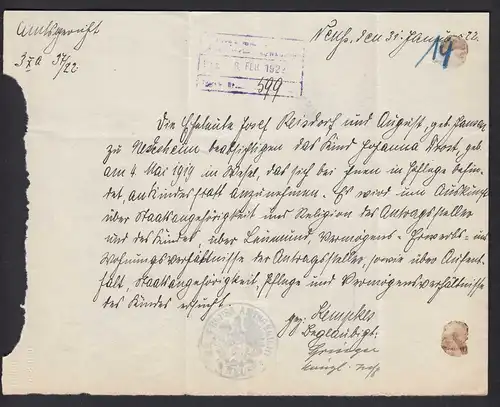 Amtsgericht
Neuß, den 31. Januar 22.
3 X a 37/22
19
8. FEB. 1922
599
Die Eheleute Josef Reisdorf und August, geb. Jansen
zu Uedesheim beabsichtigen das Kind Johanna Drost, geb.
am 4 Mai 1919 in Wesel, das sich bei Ihnen in Pflege befin-
det, an Kindesstatt anzunehmen. Es wird um Auskunft
über Staatsangehörigkeit und Religion des Antragsteller
und des Kindes, über Leumund, Vermögens- Erwerbs- und
Wohnungsverhältnisse der Antragsteller, sowie über Aufent-
halt, Staatsangehörigkeit, Pflege und Vermögensverhältnisse
des Kindes ersucht.
gez. Hempkes
Beglaubigt: